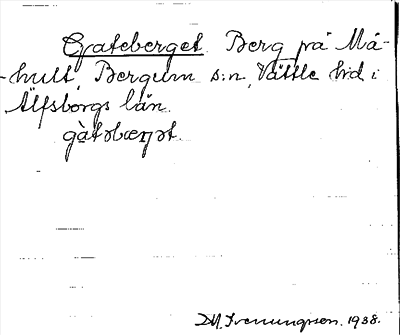 Gateberget. Berg på Må-
-hult, Bergum s:n, Vättle hd i
Älfsborgs län.
gàtəbærjət.
1938.